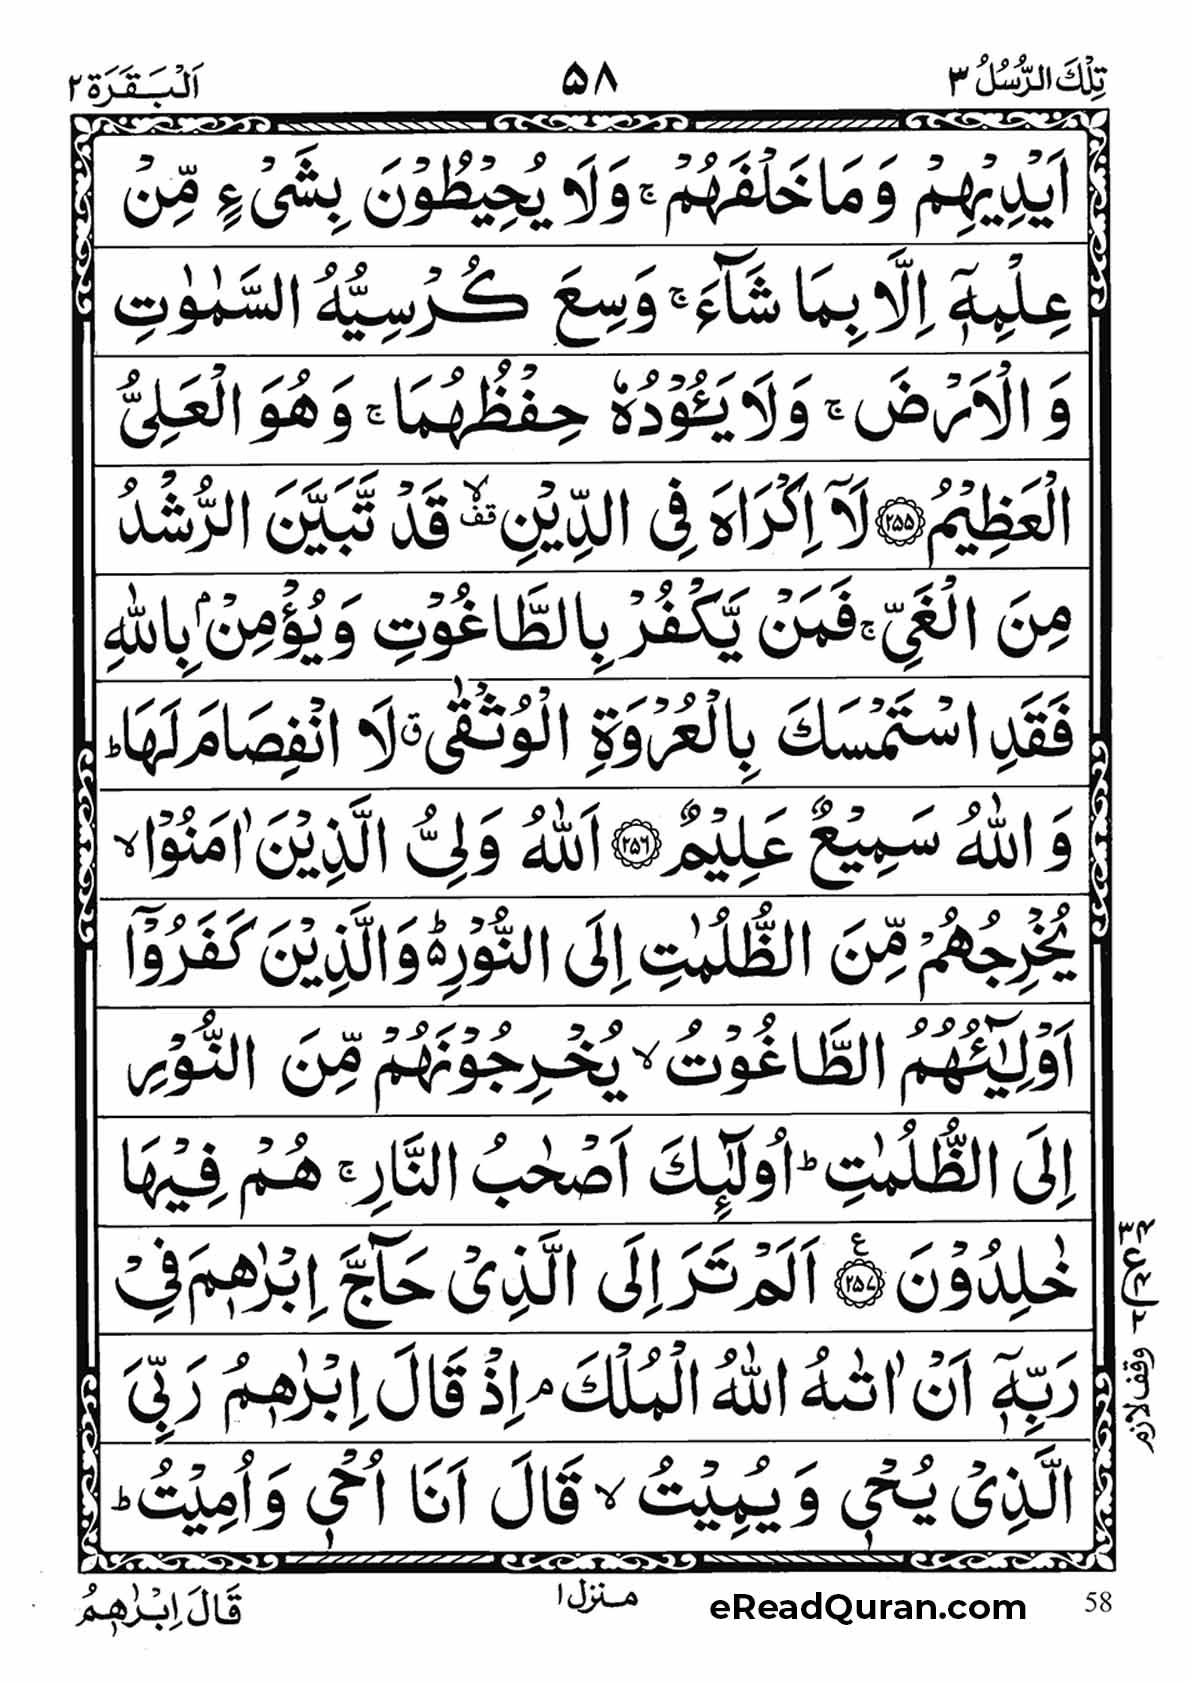 تِلْكَ الرُّسُلُ ٣
٥٨
اَلْبَقَرَة ٢
اَيْدِيْهِمْ وَمَا خَلْفَهُمْ ۚ وَلَا يُحِيْطُوْنَ بِشَیْءٍ مِّنْ
عِلْمِهٖٓ اِلَّا بِمَا شَآءَ ۚ وَسِعَ كُرْسِيُّهُ السَّمٰوٰتِ
وَ الْاَرْضَ ۚ وَلَا يَـُٔوْدُهٗ حِفْظُهُمَا ۚ وَ هُوَ الْعَلِيُّ
الْعَظِيْمُ ﴿٢٥٥﴾ لَآ اِكْرَاهَ فِی الدِّيْنِ ۙقف قَدْ تَّبَيَّنَ الرُّشْدُ
مِنَ الْغَيِّ ۚ فَمَنْ يَّكْفُرْ بِالطَّاغُوْتِ وَيُؤْمِنْۢ بِاللّٰهِ
فَقَدِ اسْتَمْسَكَ بِالْعُرْوَةِ الْوُثْقٰی ق لَا انْفِصَامَ لَهَا ؕ
وَ اللّٰهُ سَمِيْعٌ عَلِيْمٌ ﴿٢٥٦﴾ اَللّٰهُ وَلِیُّ الَّذِيْنَ اٰمَنُوْا ۙ
يُخْرِجُهُمْ مِّنَ الظُّلُمٰتِ اِلَی النُّوْرِ ؕ۬ وَالَّذِيْنَ كَفَرُوْٓا
اَوْلِيٰٓـُٔهُمُ الطَّاغُوْتُ ۙ يُخْرِجُوْنَهُمْ مِّنَ النُّوْرِ
اِلَی الظُّلُمٰتِ ؕ اُولٰٓئِكَ اَصْحٰبُ النَّارِ ۚ هُمْ فِيْهَا
خٰلِدُوْنَ ﴿٢٥٧﴾ ع اَلَمْ تَرَ اِلَی الَّذِیْ حَآجَّ اِبْرٰهٖمَ فِیْ
رَبِّهٖٓ اَنْ اٰتٰىهُ اللّٰهُ الْمُلْكَ ۘ اِذْ قَالَ اِبْرٰهٖمُ رَبِّیَ
الَّذِیْ يُحْیٖ وَ يُمِيْتُ ۙ قَالَ اَنَا اُحْیٖ وَ اُمِيْتُ ؕ
وقف لازم
قَالَ اِبْرٰهٖمُ
منزل ١
eReadQuran.com
58